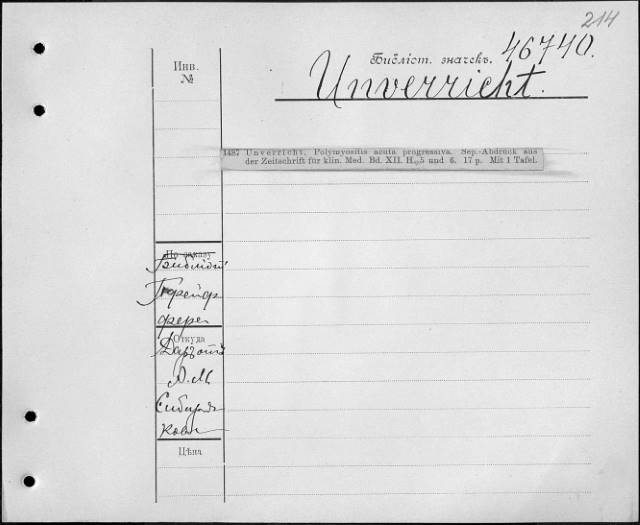 214
Библіот. значекъ. 46740.
Инв.
№
Unverricht.
1487 Unverricht, Polymyositis acuta progressiva. Sep.-Abdruck aus
der Zeitschrift für klin. Med. Bd. XII. H. 5 und 6. 17 p. Mit 1 Tafel.
По заказу
Библіот
Откуда
Даръ отъ
А. М.
Сибиря-
кова
Цѣна